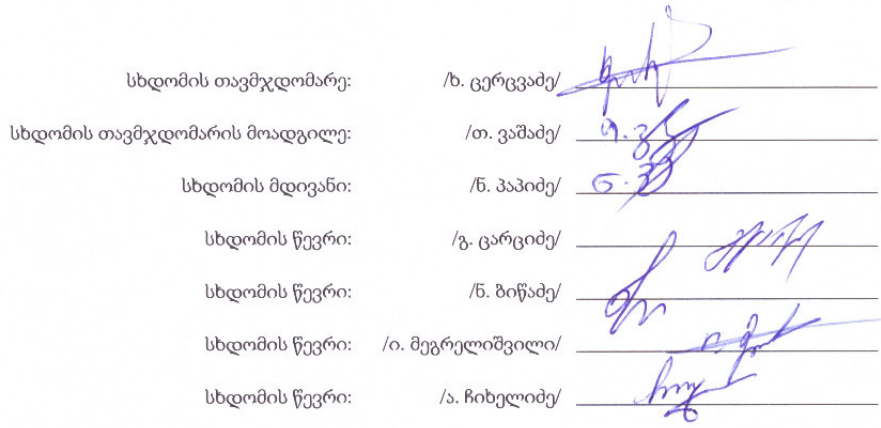 სხდომის თავმჯდომარე: /ხ. ცერცვაძე/
სხდომის თავმჯდომარის მოადგილე: /თ. ვაშაძე/
სხდომის მდივანი: /ნ. პაპიძე/
სხდომის წევრი: /გ. ცარციძე/
სხდომის წევრი: /ნ. ბიწაძე/
სხდომის წევრი: /ი. მეგრელიშვილი/
სხდომის წევრი: /ა. ჩიხელიძე/